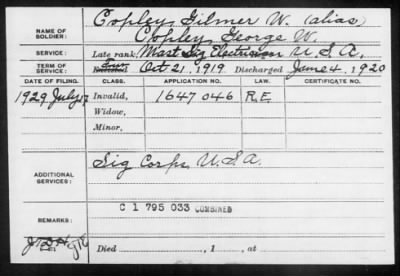 NAME OF SOLDIER: Copley, Gilmer W. (alias)
Copley, George W.
SERVICE: Late rank, Mast Sig Electrician U.S.A.
TERM OF SERVICE: Enlisted Oct 21, 1919 Discharged June 4, 1920
DATE OF FILING. CLASS. APPLICATION NO. LAW. CERTIFICATE NO.
1929 July 17 Invalid, 1647046 R.E.
Widow,
Minor,
ADDITIONAL SERVICES: Sig Corps U.S.A.
C 1 795 033 COMBINED
REMARKS:
Died , 1 , at